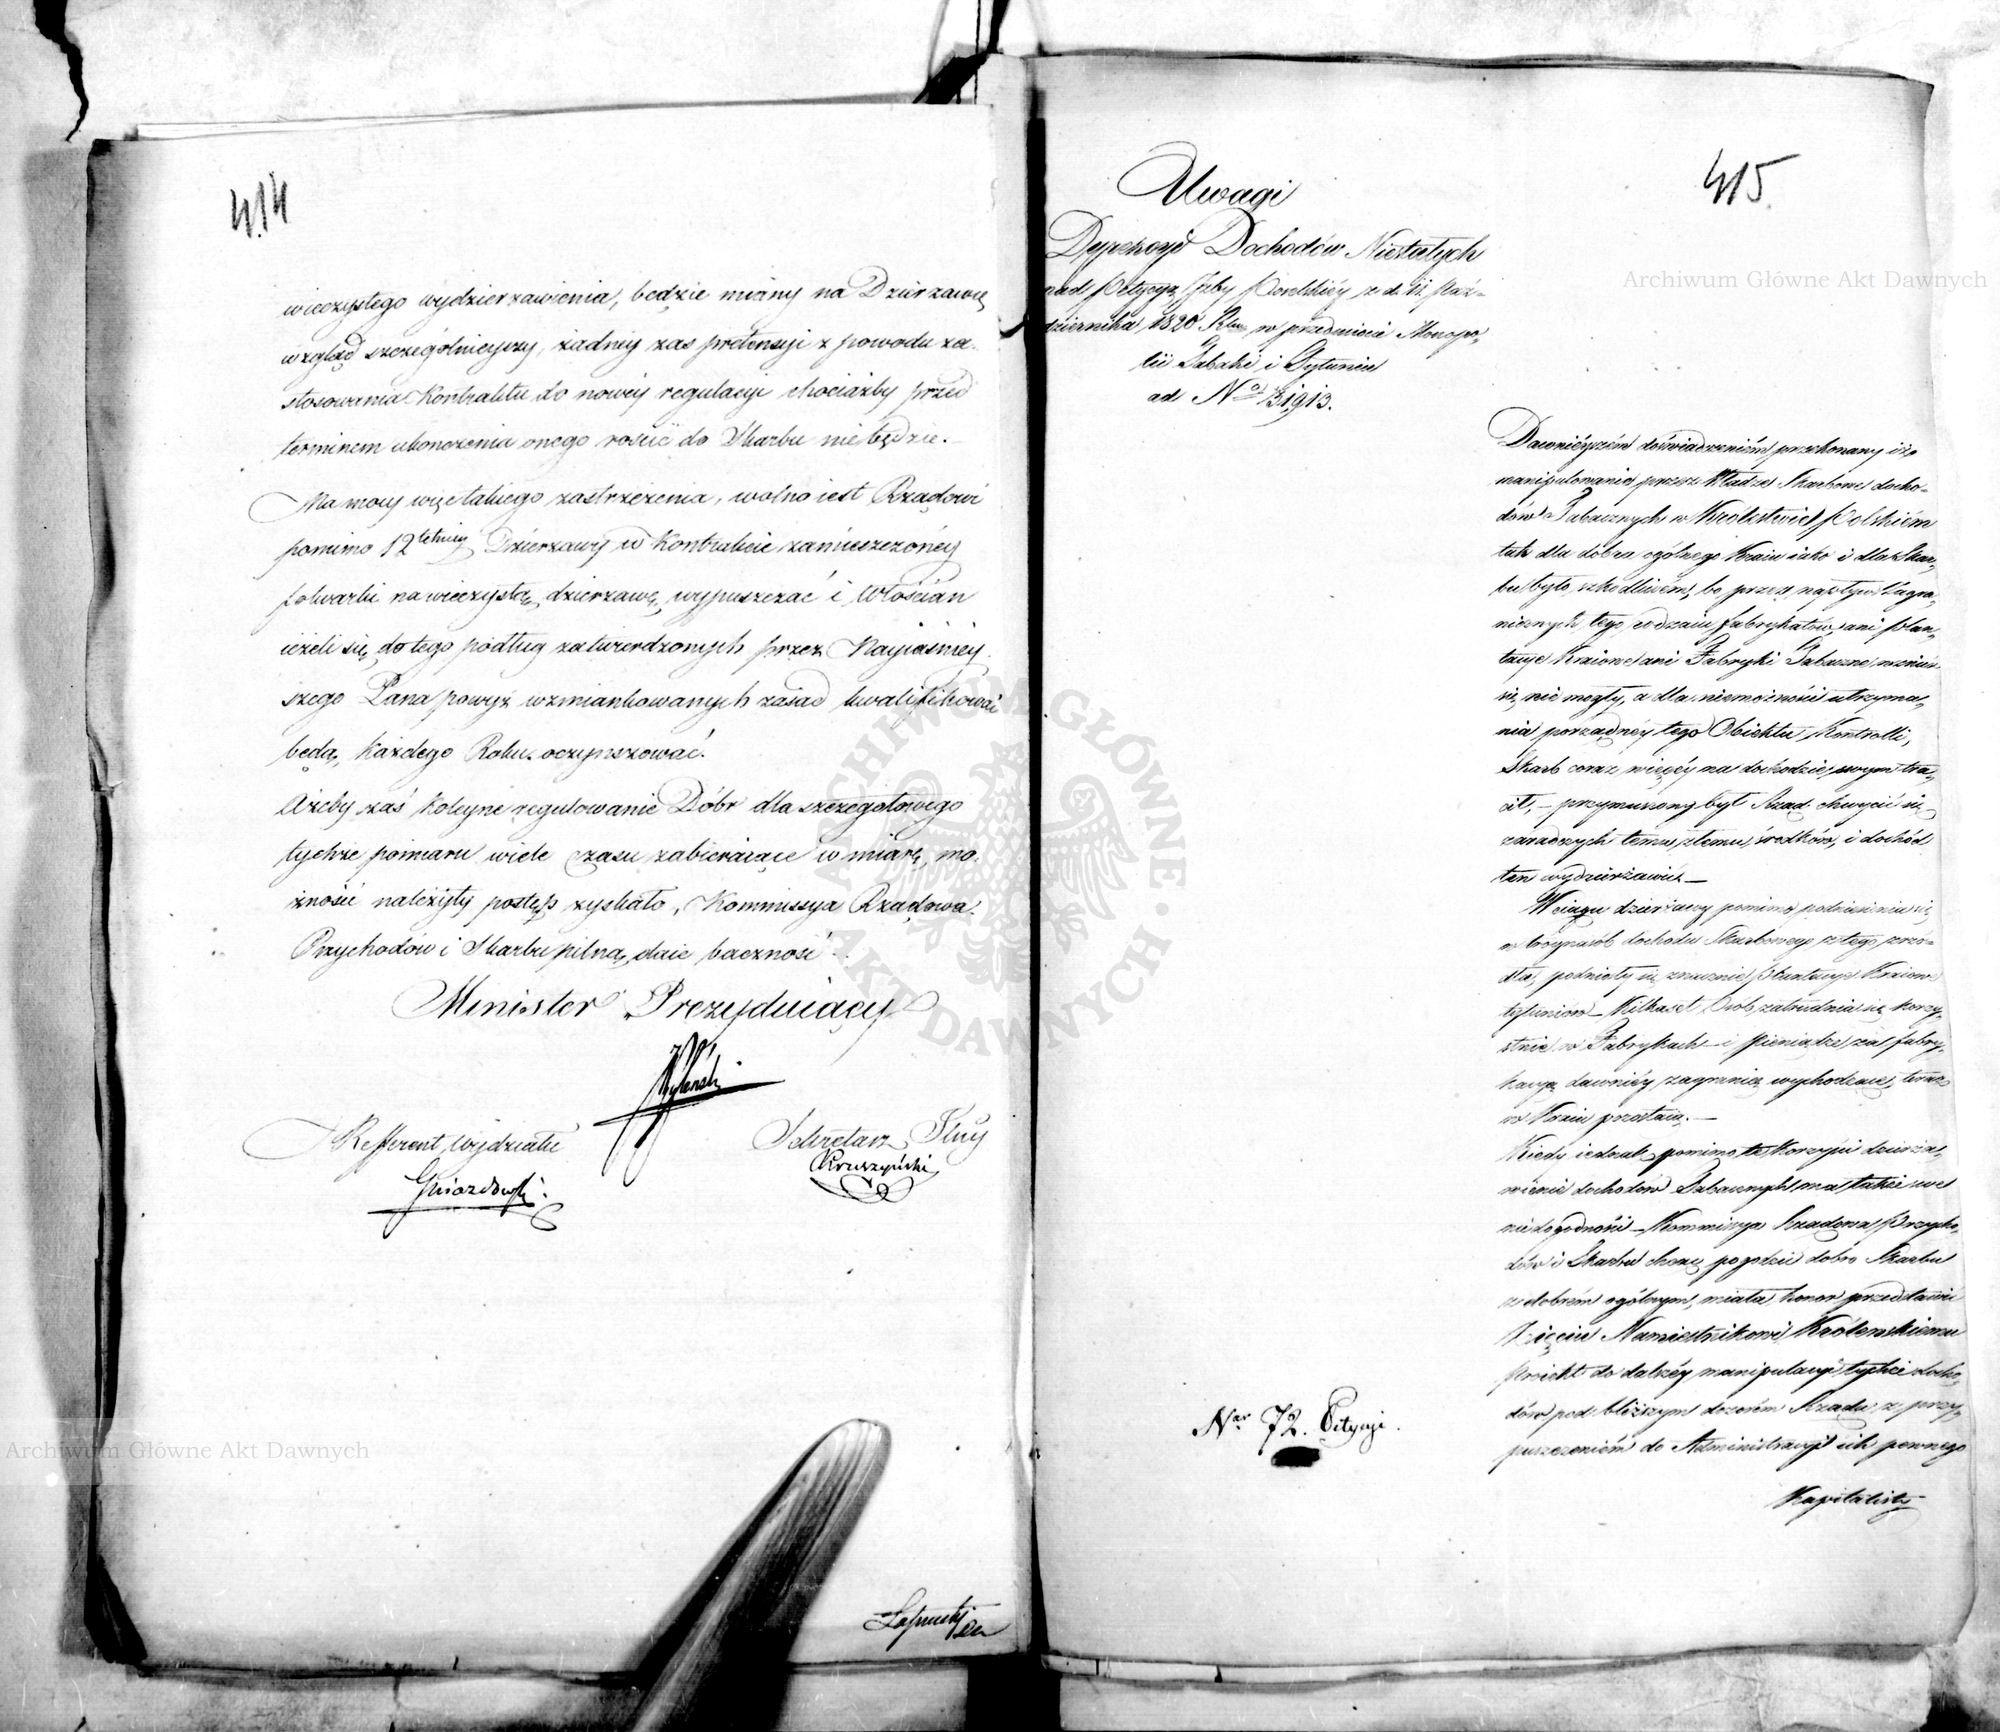 414
wieczystego wydzierzawienia, będzie miány na Dzierzawcę
wzgląd szczególnieyszy, żadney zas pretensyi z powodu za-
stosowania Kontraktu do nowey regulacyi chociażby przed
terminem ukonczenia onego rościć do Skarbu nie będzie.
Na mocy więc takiego zastrzeżenia, wolno iest Rządowi
pomimo 12 letniey Dzierzawy w Kontrakcie zamieszczoney
folwarki na wieczystą dzierzawę wypuszczać i Włoscian
ieżeli się do tego podług zatwierdzonych przez Nayiaśniey-
szego Pana powyż wzmiankowanych zasad kwalifikować
będą, każdego Roku oczynszować.
Ażeby zaś koleyne regulowanie Dóbr dla szczegołowego
tychże pomiaru wiele czasu zabieraiące w miarę mo-
żności należyty postęp zyskało, Kommissya Rządowa
Przychodów i Skarbu pilną daie baczność.
Minister Prezyduiący
Refferent Wydziału
Gwiazdowski
Sekretarz Jlny
Kruszyński
415.
Uwagi
Dyrekcyi Dochodów Niestałych
nad Petycyą Jzby Poselskiéy z d. 11. Paź-
dziernika 1820 Rku w przedmiocie Monopo-
lii Tabaki i Tytuniu
ad No 31913.
Dawnieyszém doświadczeniém przekonany iż
manipulowanie przez Władze Skarbowe docho-
dów Tabacznych w Królestwie Polskiém
tak dla dobra ogólnego Kraiu iako i dla Skar-
bu było szkodliwém, bo przez napływ Zagra-
nicznych tego rodzaiu fabrykatów, ani plan-
tacye Kraiowe ani Fabryki Tabaczne wznieść
się nie mogły, a dla niemożności utrzyma-
nia porządnéy tego Obiektu Kontrolli,
Skarb coraz więcéy na dochodzie swym tra-
cił, - przymuszony był Rząd chwycić się
zaradczych temu złemu środków, i dochód
ten wydzierżawić. —
W ciągu dzierżawy pomimo podniesienia się
w tróynasób dochodu Skarbowego z tego zró-
dła, podniosły się znacznie Plantacye Kraiowe
tytuniów - Kilkaset Osób zatrudnia się korzy-
stnie w Fabrykach - i Pieniądze za fabry-
kacyą dawniéy zagranicę wychodzące, teraz
w Kraiu zostaią. —
Kiedy iednak pomimo te korzyści dzierża-
wienie dochodów Tabacznych ma także swe
niedogodności - Kommissya Rządowa Przycho-
dów i Skarbu chcąc pogodzić dobro Skarbu
z dobrém ogólnym, miała honor przedstawić
Xięciu Namiestnikowi Królewskiemu
Proiekt do dalszéy manipulacyi tychże docho-
dów pod bliższym dozorém Rządu z przy-
puszczeniém do Administracyi ich pewnego
Kapitalisty
Nar 72. Petycyi.
Archiwum Główne Akt Dawnych
Archiwum Główne Akt Dawnych
ARCHIWUM GŁÓWNE AKT DAWNYCH